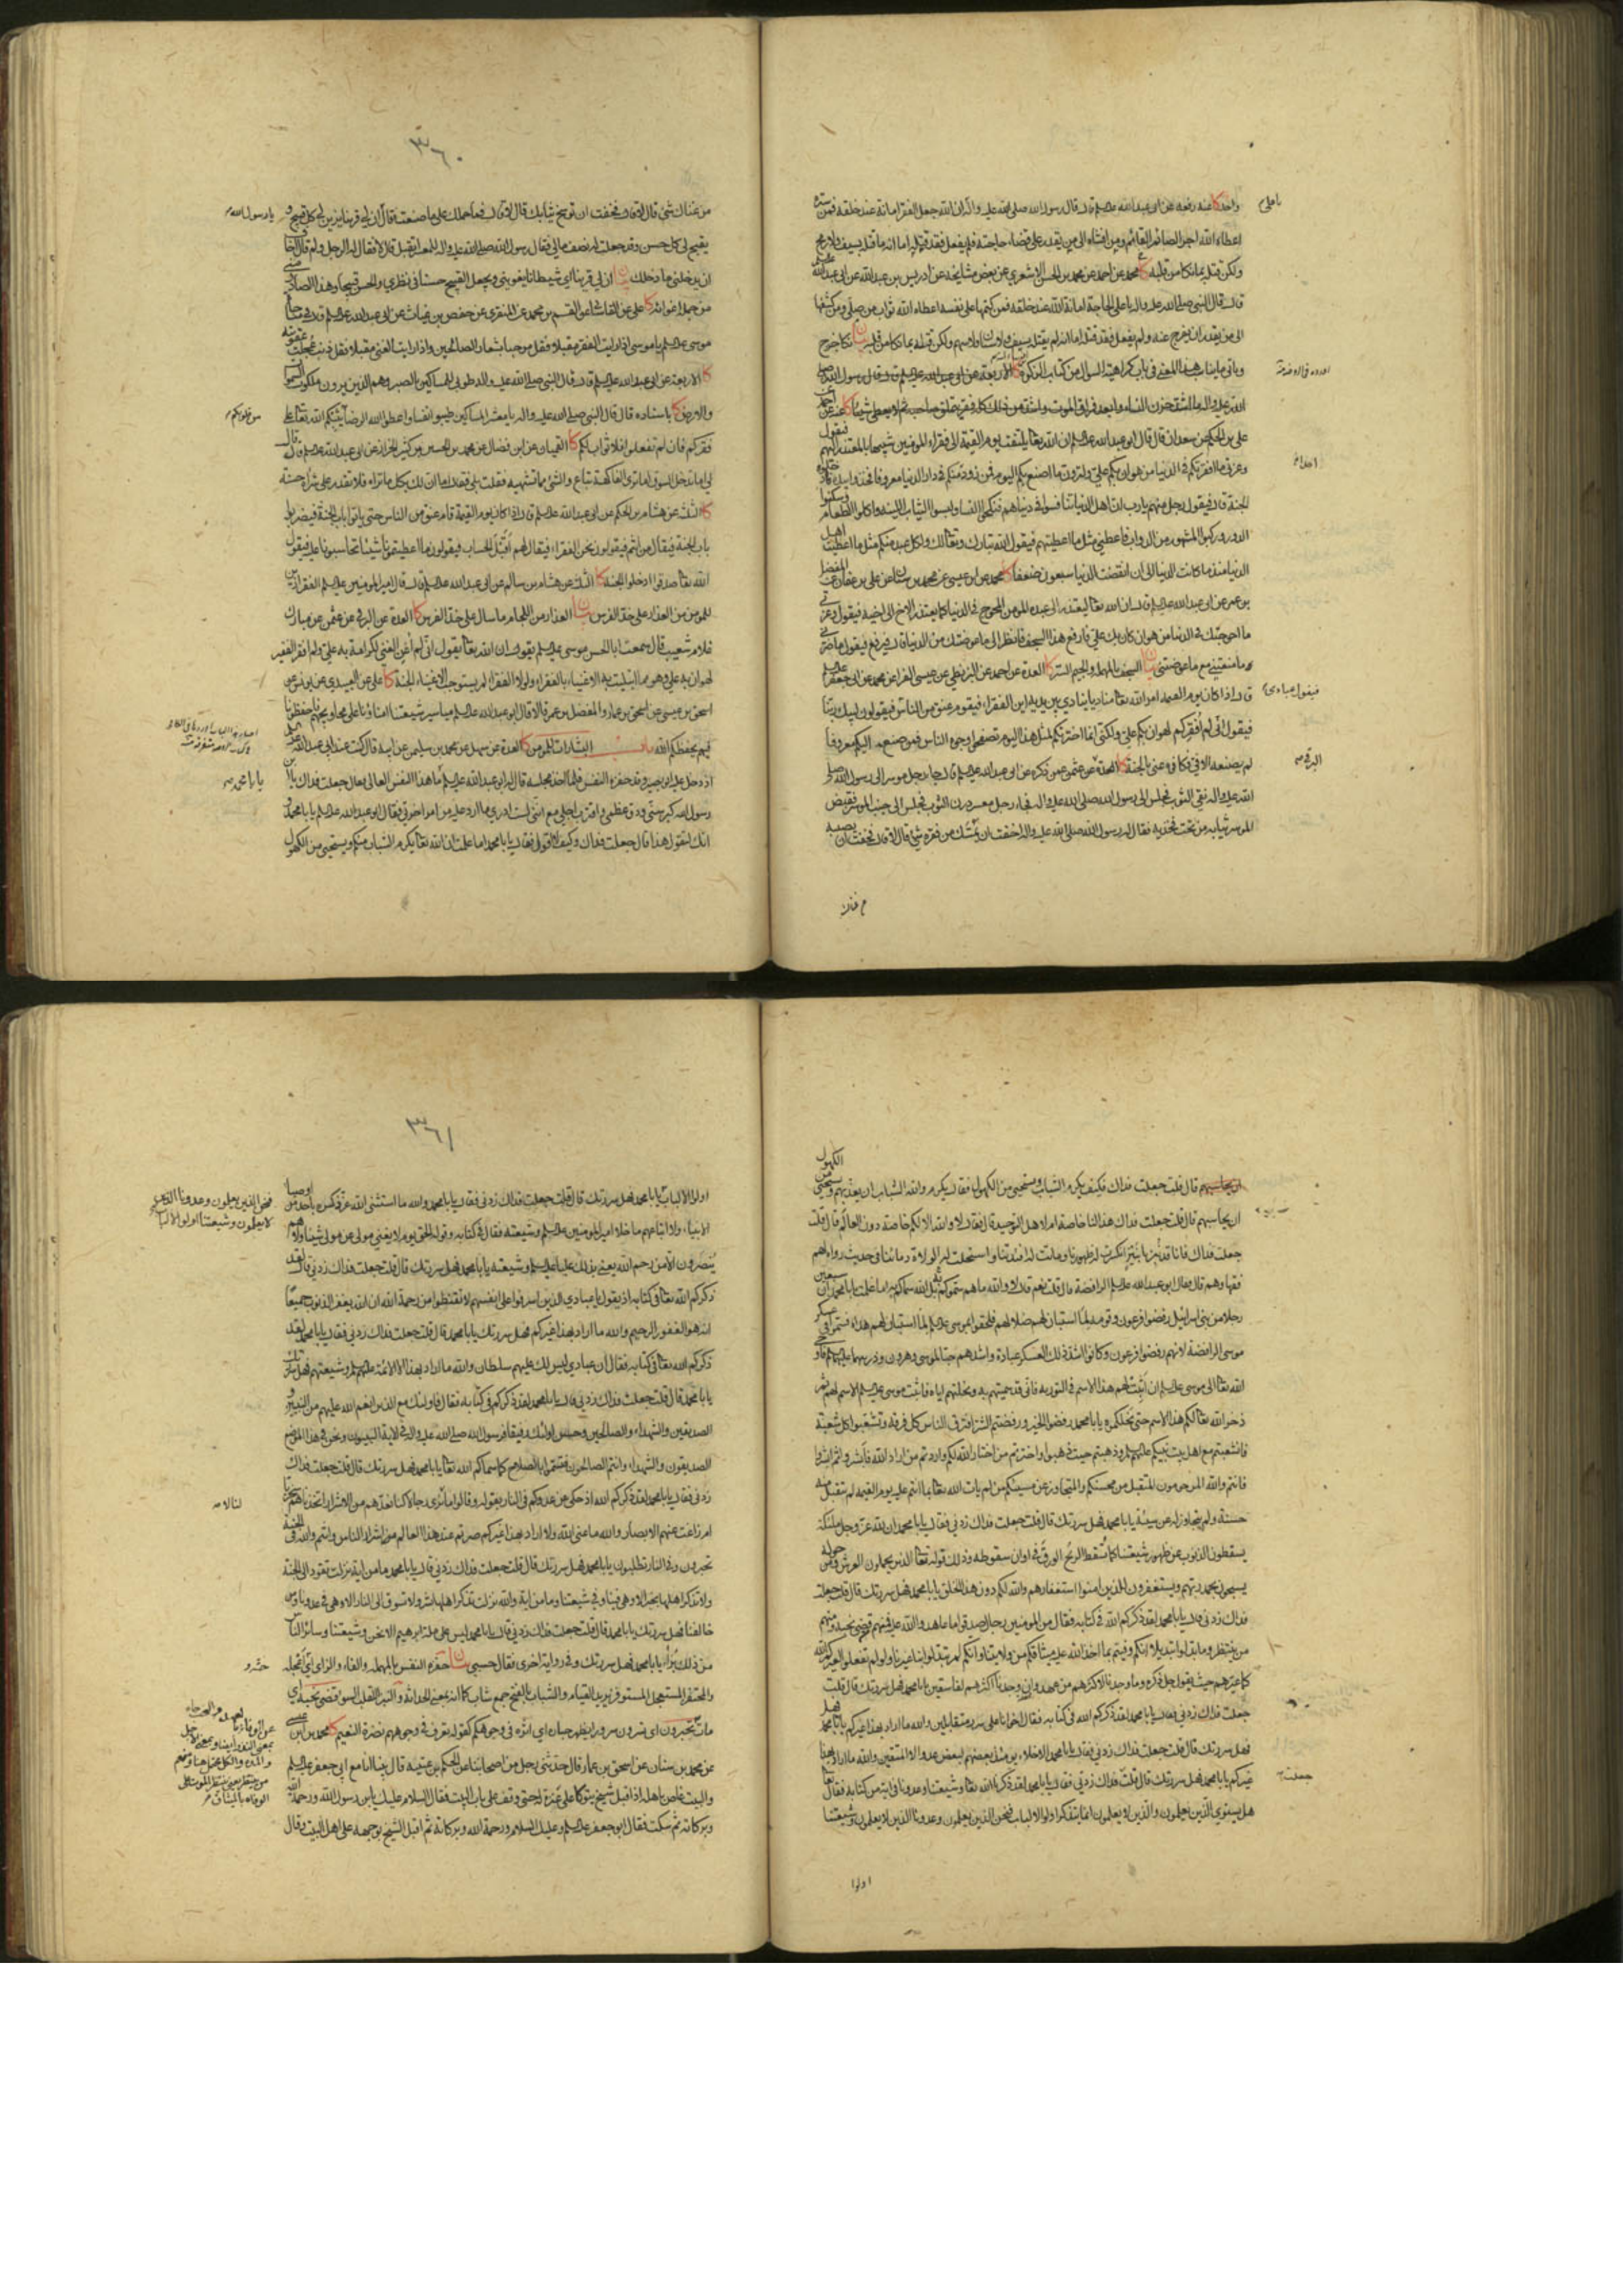 واحد كا عنه رفعه عن ابي عبدالله عليه السلام قال قال رسول الله صلى الله عليه واله ان الله جعل الفقر امانة عند خلقه فمن ستره
اعطاه الله اجر الصائم القائم ومن افشاه الى من يقدر على قضاء حاجته فلم يفعل فقد قتله اما انه ما قتله بسيف ولا رمح
ولكن قتله بما نكا من قلبه كا محمد عن احمد عن محمد بن الحسن الاشعري عن بعض مشايخه عن ادريس بن عبدالله عن ابي عبدالله
قال قال النبي صلى الله عليه واله يا علي الحاجة امانة الله عند خلقه فمن كتمها على نفسه اعطاه الله ثواب من صلى ومن كشفها
الى من يقدر ان يفرج عنه ولم يفعل فقد قتله اما انه لم يقتله بسيف ولا سنان ولا سهم ولكن قتله بما نكا من قلبه بيان نكا جرح
وياتي ما يناسب هذا المعنى في باب كراهية السؤال من كتاب الزكوة كا الاربعة عن ابي عبد الله عليه السلام قال قال رسول الله صلى
على بن الحكم عن سعدان قال قال ابو عبد الله عليه السلام ان الله تعالى يلتفت يوم القيمة الى فقراء المؤمنين شبيها بالمعتذر اليهم فيقول
وعزتي ما افقرتكم في الدنيا من هوان بكم علي ولترون ما اصنع بكم اليوم فمن زود منكم في دار الدنيا معروفا فخذوا بيده فادخلوه
الجنة قال فيقول رجل منهم يا رب ان اهل الدنيا تنافسوا في دنياهم فنكحوا النساء ولبسوا الثياب اللينة واكلوا الطعام وسكنوا
الدور وركبوا المشهور من الدواب فاعطني مثل ما اعطيتهم فيقول الله تبارك وتعالى لك ولكل عبد منكم مثل ما اعطيت اهل
الدنيا منذ ما كانت الدنيا الى ان انقضت الدنيا سبعون ضعفا كا
بن عمر عن ابي عبد الله عليه السلام قال ان الله تعالى ليعتذر الى عبده المؤمن المحوج في الدنيا كما يعتذر الاخ الى اخيه فيقول وعزتي
ما احوجتك في الدنيا من هوان كان بك علي فارفع هذا السجف فانظر الى ما عوضتك من الدنيا قال فيرفع فيقول ما ضرني
ما منعتني مع ما عوضتني بيان السجف بالمهملة والجيم الستر كا العدة عن احمد عن البزنطي عن عيسى الفرا عن محمد عن ابي جعفر عليه السلام
قال اذا كان يوم القيمة امر الله تعالى مناديا ينادي بين يديه اين الفقراء فيقوم عنق من الناس فيقولون لبيك ربنا
فيقول اني لم افقركم لهوان بكم علي ولكني انما اخترتكم لمثل هذا اليوم تصفحوا وجوه الناس فمن صنع اليكم معروفا
لم يصنعه الا في فكافوه عني بالجنة كا العدة عن عثمن عمن ذكره عن ابي عبدالله عليه السلام قال جاء رجل موسر الى رسول الله صلى
الله عليه واله نقي الثوب فجلس الى رسول الله صلى الله عليه واله فجاء رجل معسر درن الثوب فجلس الى جنب الموسر فقبض
الموسر ثيابه من تحت فخذيه فقال له رسول الله صلى الله عليه واله اخفت ان يمسك من فقره شئ قال لا قال فخفت ان يصيبه
٣٦٠
من غناك شئ قال لا قال فخفت ان توسخ ثيابك قال لا قال فما حملك على ما صنعت فقال ان لي قرينا يزين لي كل قبيح و
يقبح لي كل حسن وقد جعلت له نصف مالي فقال رسول الله صلى الله عليه واله للمعسر اتقبل قال لا فقال له الرجل ولم قال اخاف
ان يدخلني ما دخلك بيان ان لي قرينا اي شيطانا يغويني ويجعل القبيح حسنا في نظري والحسن قبيحا وهذا الصادر مني
من جملة اغوائه كا علي عن القاساني عن القسم بن محمد عن المنقري عن حفص بن غياث عن ابي عبدالله عليه السلام قال في مناجاة
موسى عليه السلام يا موسى اذا رايت الفقر مقبلا فقل مرحبا بشعار الصالحين واذا رايت الغنى مقبلا فقل ذنب عجلت عقوبته
كا الاربعة عن ابي عبدالله عليه السلام قال قال النبي صلى الله عليه واله طوبى للمساكين بالصبر وهم الذين يرون ملكوت السموات
والارض كا باسناده قال قال النبي صلى الله عليه واله يا معشر المساكين طيبوا نفسا واعطوا الله الرضا يثبكم الله تعالى على
فقركم فان لم تفعلوا فلا ثواب لكم كا القميان عن ابن فضال عن محمد بن الحسين بن كثير الخزاز عن ابي عبدالله عليه السلام قال
لي اما تدخل السوق اما ترى الفاكهة تباع والشئ مما تشتهيه فقلت بلى فقال اما ان لك بكل ما تراه فلا تقدر على شراه حسنة
كا الثلثة عن هشام بن الحكم عن ابي عبدالله عليه السلام قال اذا كان يوم القيمة قام عنق من الناس حتى ياتوا باب الجنة فيضربوا
باب الجنة فيقال من انتم فيقولون نحن الفقراء فيقال لهم اقبل الحساب فيقولون ما اعطيتمونا شيئا تحاسبونا عليه فيقول
الله تعالى صدقوا ادخلوا الجنة كا الثلثة عن هشام بن سالم عن ابي عبدالله عليه السلام قال قال امير المؤمنين عليه السلام الفقر ازين
للمؤمن من العذار على خد الفرس بيان العذار من اللجام ما سال على خد الفرس كا العدة عن البرقي عن عثمن عن مبارك
غلام شعيب قال سمعت ابا الحسن موسى عليه السلام يقول ان الله تعالى يقول اني لم اغن الغني لكرامة به علي ولم افقر الفقير
لهوان به علي وهو مما ابتليت به الاغنياء بالفقراء ولولا الفقراء لم يستوجب الاغنياء الجنة كا علي عن العبيدي عن يونس عن
اسحق بن عيسى عن اسحق بن عمار والمفضل بن عمر قالا قال ابو عبدالله عليه السلام مياسير شيعتنا امناؤنا على محاويجهم فاحفظونا
فيهم يحفظكم الله باب البشارات للمؤمن كا العدة عن سهل عن محمد بن سليمن عن ابيه قال كنت عند ابي عبدالله عليه السلام
اذ دخل عليه ابو بصير وقد حفزه النفس فلما اخذ مجلسه قال له ابو عبدالله عليه السلام ما هذا النفس العالي فقال جعلت فداك يا ابن
رسول الله كبر سني ودق عظمي واقترب اجلي مع انني لست ادري ما ارد عليه من امر اخرتي فقال ابو عبدالله عليه السلام يا با محمد و
انك لتقول هذا قال جعلت فداك وكيف لا اقول فقال يا با محمد اما علمت ان الله تعالى يكرم الشباب منكم ويستحيي من الكهول
قال قلت جعلت فداك فكيف يكرم الشباب ويستحيي من الكهول فقال يكرم والله الشباب ان يعذبهم ويستحيي من الكهول
ان يحاسبهم قال قلت جعلت فداك هذا لنا خاصة ام لاهل التوحيد قال فقال لا والله الا لكم خاصة دون العالم قال قلت
جعلت فداك فانا قد نبزنا نبزا انكسرت له ظهورنا وماتت له افئدتنا واستحلت له الولاة دمائنا في حديث رواه لهم
فقهاوهم قال فقال ابو عبدالله عليه السلام الرافضة قال قلت نعم قال لا والله ما هم سموكم بل الله سماكم به اما علمت يا با محمد ان سبعين
رجلا من بني اسرائيل رفضوا فرعون وقومه لما استبان لهم ضلالهم فلحقوا بموسى عليه السلام لما استبان لهم هداه فسموا في عسكر
موسى الرافضة لانهم رفضوا فرعون وكانوا اشد ذلك العسكر عبادة واشدهم حبا لموسى وهرون وذريتهما عليهم السلام فاوحى
الله تعالى الى موسى عليه السلام ان اثبت لهم هذا الاسم في التورية فاني قد سميتهم به ونحلتهم اياه فاثبت موسى عليه السلام الاسم لهم ثم
ذخر الله تعالى لكم هذا الاسم حتى نحلكموه يا با محمد رفضوا الخير ورفضتم الشر افترق الناس كل فرقة وتشعبوا كل شعبة
فانشعبتم مع اهل بيت نبيكم عليهم السلام وذهبتم حيث ذهبوا واخترتم من اختار الله لكم واردتم من اراد الله فابشروا ثم ابشروا
فانتم والله المرحومون المتقبل من محسنكم والمتجاوز عن مسيئكم من لم يات الله تعالى بما انتم عليه يوم القيمة لم تتقبل منه
حسنة ولم يتجاوز له عن سيئة يا با محمد فهل سررتك قال قلت جعلت فداك زدني فقال يا با محمد ان لله عز وجل ملئكة
يسقطون الذنوب عن ظهور شيعتنا كما تسقط الريح الورق في اوان سقوطه وذلك قوله تعالى الذين يحملون العرش ومن حوله
يسبحون بحمد ربهم ويستغفرون للذين امنوا استغفارهم والله لكم دون هذا الخلق يا با محمد فهل سررتك قال قلت جعلت
فداك زدني قال يا با محمد لقد ذكركم الله في كتابه فقال من المؤمنين رجال صدقوا ما عاهدوا الله عليه فمنهم من قضى نحبه ومنهم
من ينتظر وما بدلوا تبديلا انكم وفيتم بما اخذ الله عليه ميثاقكم من ولايتنا وانكم لم تبدلوا بنا غيرنا ولو لم تفعلوا لعيركم الله
كما عيرهم حيث يقول جل ذكره وما وجدنا لاكثرهم من عهد وان وجدنا اكثرهم لفاسقين يا با محمد فهل سررتك قال قلت
جعلت فداك زدني فقال يا با محمد لقد ذكركم الله في كتابه فقال اخوانا على سرر متقابلين والله ما اراد بهذا غيركم يا با محمد
فهل سررتك قال قلت جعلت فداك زدني فقال يا با محمد الاخلاء يومئذ بعضهم لبعض عدو الا المتقين والله ما اراد بهذا
غيركم يا با محمد فهل سررتك قال قلت فداك زدني فقال يا با محمد لقد ذكرنا الله تعالى وشيعتنا وعدونا في اية من كتابه فقال تعالى
هل يستوي الذين يعلمون والذين لا يعلمون انما يتذكر اولوا الالباب فنحن الذين يعلمون وعدونا الذين لا يعلمون وشيعتنا
اولوا
٣٦١
اولوا الالباب يا با محمد فهل سررتك قال قلت جعلت فداك زدني فقال يا با محمد والله ما استثنى الله عز ذكره باحد من اوصياء
الانبياء ولا اتباعهم ما خلا امير المؤمنين عليه السلام وشيعته فقال في كتابه وقوله الحق يوم لا يغني مولى عن مولى شيئا ولا هم
ينصرون الا من رحم الله يعني بذلك عليا عليه السلام وشيعته يا با محمد فهل سررتك قال قلت جعلت فداك زدني قال لقد
ذكركم الله تعالى في كتابه اذ يقول يا عبادي الذين اسرفوا على انفسهم لا تقنطوا من رحمة الله ان الله يغفر الذنوب جميعا
انه هو الغفور الرحيم والله ما اراد بهذا غيركم فهل سررتك يا با محمد قال قلت جعلت فداك زدني فقال يا با محمد لقد
ذكركم الله تعالى في كتابه فقال ان عبادي ليس لك عليهم سلطان والله ما اراد بهذا الا الائمة عليهم السلام وشيعتهم فهل سررتك
يا با محمد قال قلت جعلت فداك زدني قال يا با محمد لقد ذكركم في كتابه فقال فاولئك مع الذين انعم الله عليهم من النبيين و
الصديقين والشهداء والصالحين وحسن اولئك رفيقا فرسول الله صلى الله عليه واله في الاية النبيون ونحن في هذا الموضع
الصديقون والشهداء وانتم الصالحون فتسموا بالصلاح كما سماكم الله تعالى يا با محمد فهل سررتك قال قلت جعلت فداك
زدني فقال يا با محمد لقد ذكركم الله اذ حكى عن عدوكم في النار بقوله وقالوا ما لنا لا نرى رجالا كنا نعدهم من الاشرار اتخذناهم سخريا
ام زاغت عنهم الابصار والله ما عنى الله ولا اراد بهذا غيركم صرتم عند هذا العالم من اشرار الناس وانتم والله في الجنة
تحبرون وفي النار تطلبون يا با محمد فهل سررتك قال قلت جعلت فداك زدني قال يا با محمد ما من اية نزلت تقود الى الجنة
ولا تذكر اهلها بخير الا وهي فينا وفي شيعتنا وما من اية والله نزلت تذكر اهلها بشر ولا تسوق الى النار الا وهي في عدونا ومن
خالفنا فهل سررتك يا با محمد قال قلت جعلت فداك زدني قال يا با محمد ليس على ملة ابرهيم الا نحن وشيعتنا وسائر الناس
من ذلك براء يا با محمد فهل سررتك وفي رواية اخرى فقال حسبي بيان حفزه النفس بالمهملة والفاء والزاي اي اعجله
تحبرون اي تسرون سرورا يظهر حباره اي اثره في وجوهكم كقوله تعرف في وجوههم نضرة النعيم كا
عن محمد بن سنان عن اسحق بن عمار قال حدثني رجل من اصحابنا عن الحكم بن عتيبة قال بينا انا مع ابي جعفر عليه السلام
والبيت غاص باهله اذ اقبل شيخ يتوكا على عنزة له حتى وقف على باب البيت فقال السلام عليك يا ابن رسول الله ورحمة الله
وبركاته ثم سكت فقال ابو جعفر عليه السلام وعليك السلام ورحمة الله وبركاته ثم اقبل الشيخ بوجهه على اهل البيت وقال